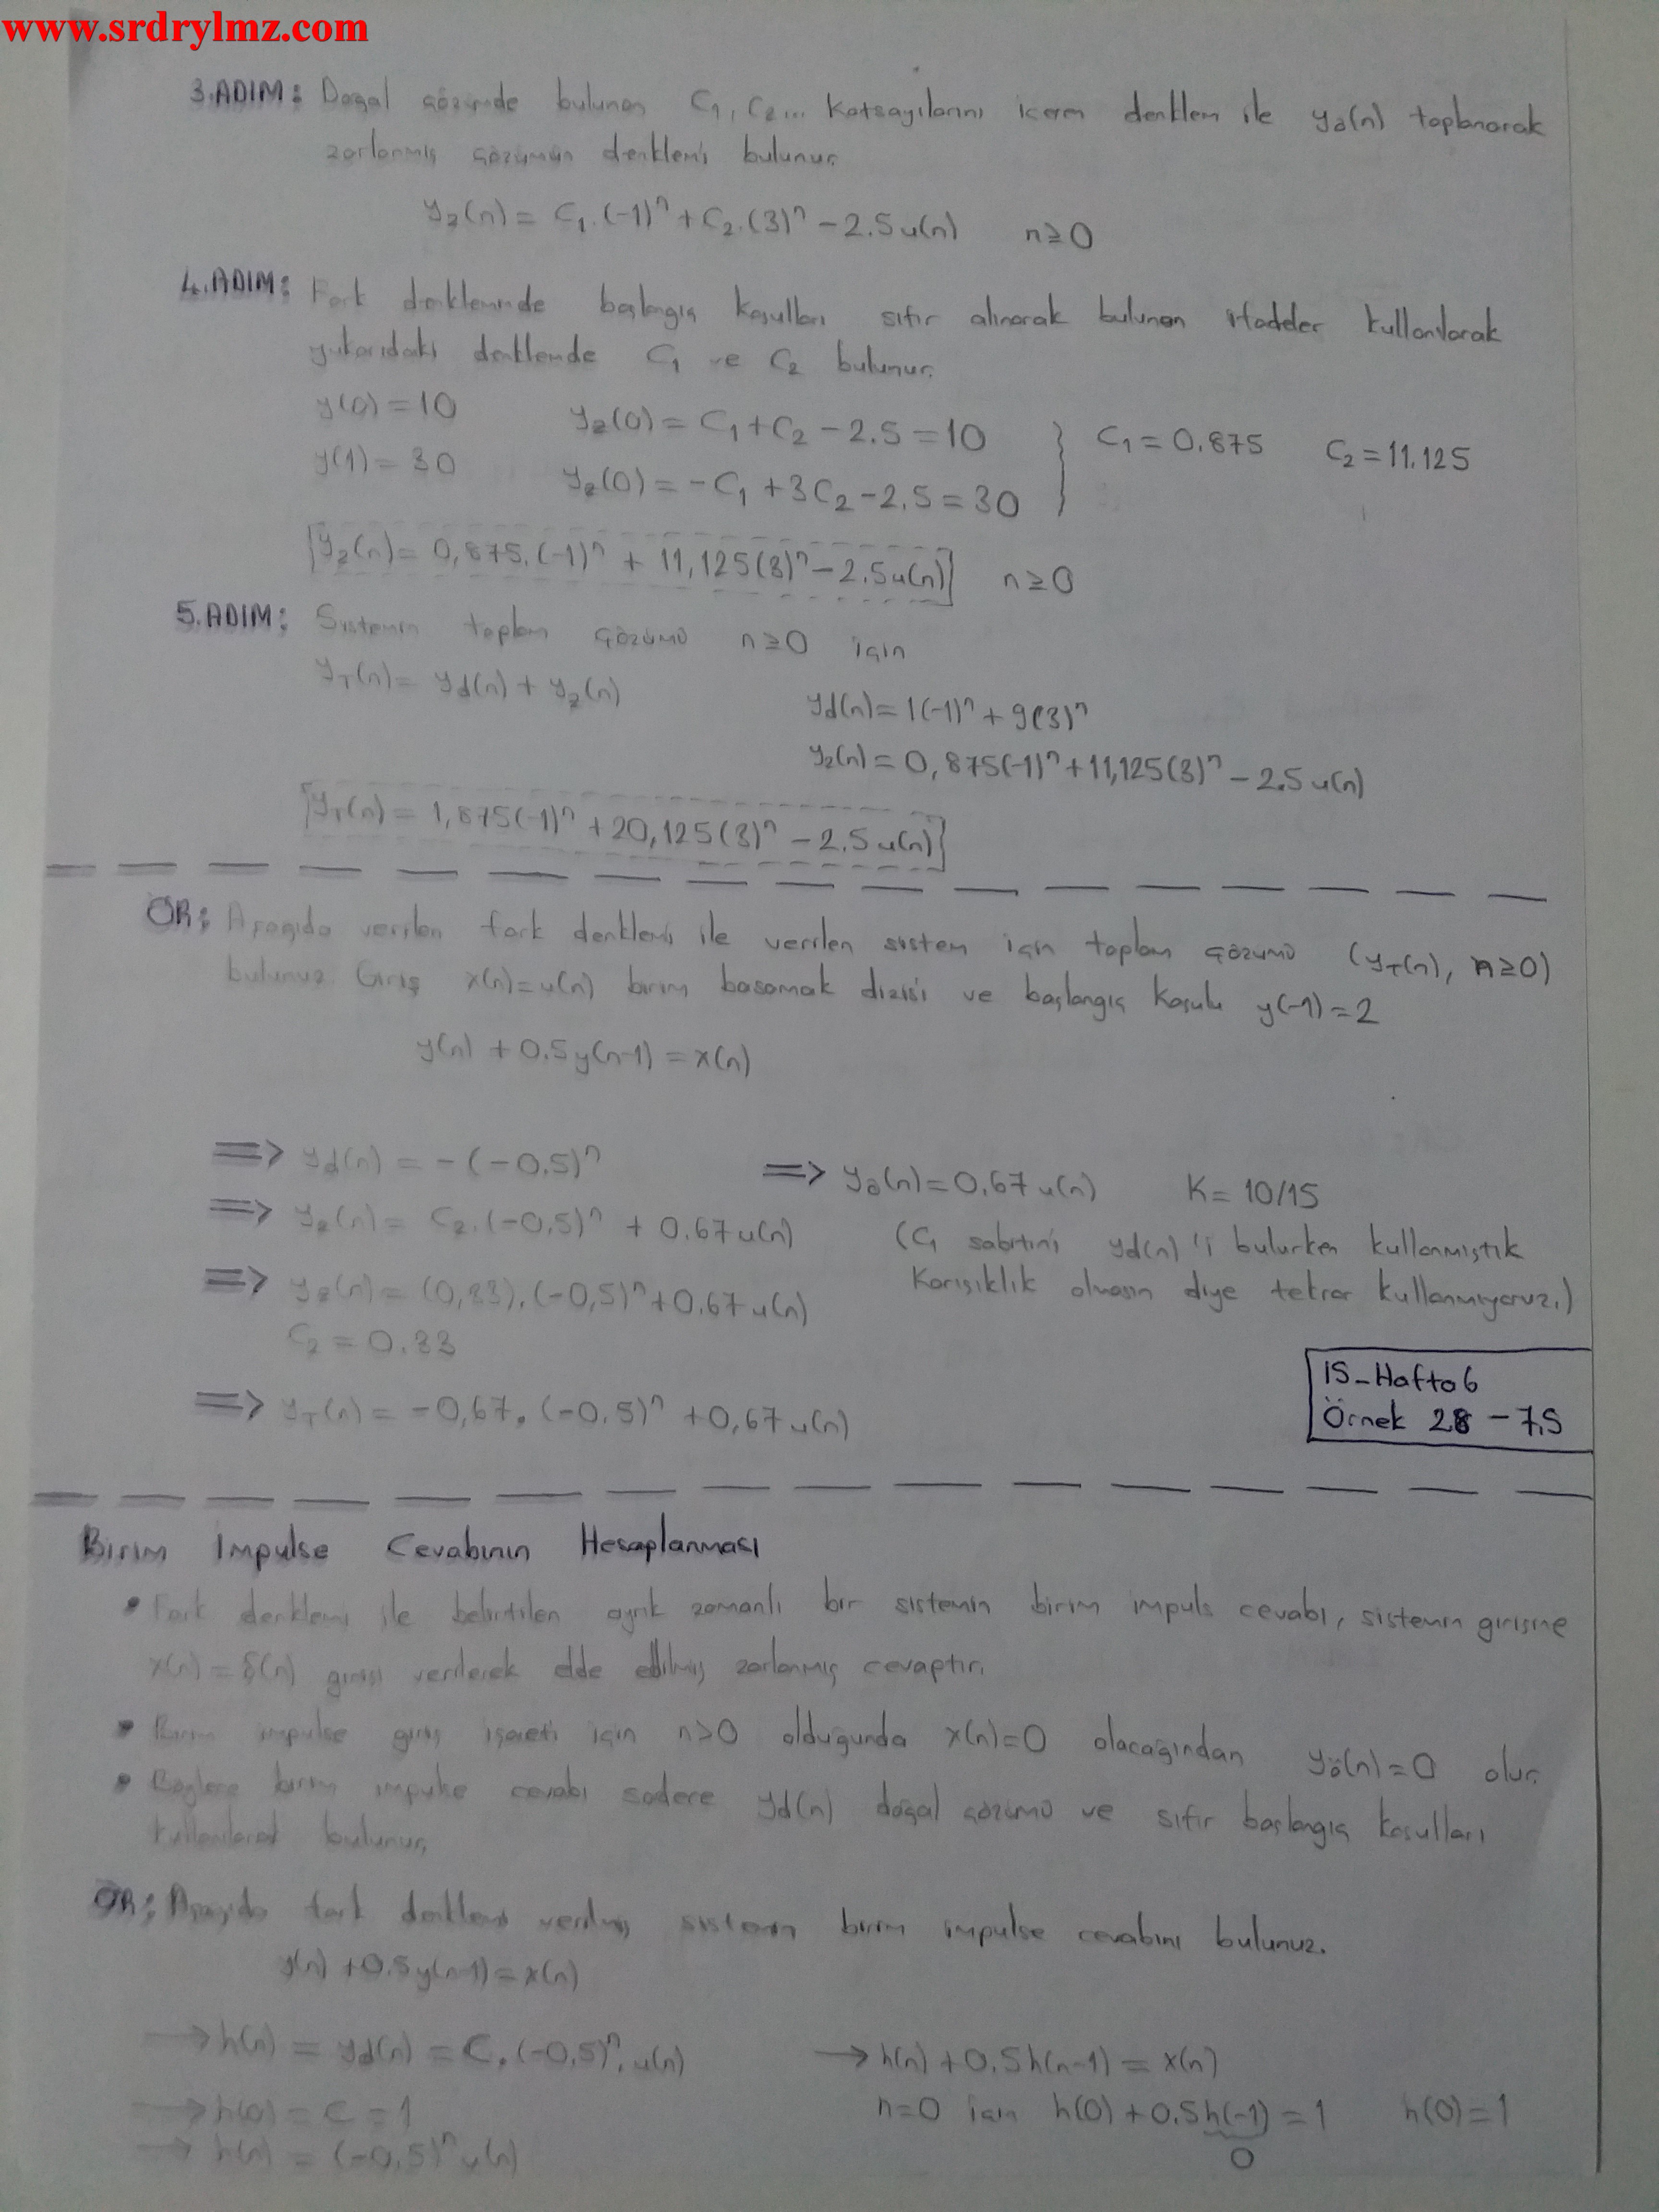 www.srdrylmz.com
3.ADIM: Doğal çözümde bulunan C₁, C₂... katsayılarını içeren denklem ile yö(n) toplanarak
zorlanmış çözümün denklemi bulunur.
yz(n) = C₁.(-1)ⁿ + C₂.(3)ⁿ - 2.5u(n)    n≥0
4.ADIM: Fark denkleminde başlangıç koşulları sıfır alınarak bulunan ifadeler kullanılarak
yukarıdaki denklemde C₁ ve C₂ bulunur.
y(0) = 10    yz(0) = C₁ + C₂ - 2.5 = 10    C₁ = 0.875    C₂ = 11.125
y(1) = 30    yz(0) = -C₁ + 3C₂ - 2.5 = 30
yz(n) = 0,875.(-1)ⁿ + 11,125(3)ⁿ - 2.5u(n)    n≥0
5.ADIM: Sistemin toplam çözümü n≥0 için
yT(n) = yd(n) + yz(n)    yd(n) = 1(-1)ⁿ + 9(3)ⁿ
yz(n) = 0,875(-1)ⁿ + 11,125(3)ⁿ - 2.5u(n)
yT(n) = 1,875(-1)ⁿ + 20,125(3)ⁿ - 2.5u(n)
ÖR: Aşağıda verilen fark denklemi ile verilen sistem için toplam çözümü (yT(n), n≥0)
bulunuz. Giriş x(n)=u(n) birim basamak dizisi ve başlangıç koşulu y(-1)=2
y(n) + 0.5y(n-1) = x(n)
=> yd(n) = -(-0.5)ⁿ    => yö(n) = 0.67u(n)    K = 10/15
=> yz(n) = C₂.(-0.5)ⁿ + 0.67u(n)    (C₁ sabitini yd(n)'i bulurken kullanmıştık
=> yz(n) = (0,33).(-0,5)ⁿ + 0,67u(n)    Karışıklık olmasın diye tekrar kullanmıyoruz.)
C₂ = 0.33
=> yT(n) = -0,67.(-0,5)ⁿ + 0,67u(n)
IS-Hafta6
Örnek 28 - 7,5
Birim Impulse Cevabının Hesaplanması
• Fark denklemi ile belirtilen ayrık zamanlı bir sistemin birim impuls cevabı, sistemin girişine
x(n) = δ(n) girişi verilerek elde edilmiş zorlanmış cevaptır.
• Birim impulse giriş işareti için n>0 olduğunda x(n)=0 olacağından yö(n)=0 olur.
• Böylece birim impulse cevabı sadece yd(n) doğal çözümü ve sıfır başlangıç koşulları
kullanılarak bulunur.
ÖR: Aşağıda fark denklemi verilmiş sistemin birim impulse cevabını bulunuz.
y(n) + 0.5y(n-1) = x(n)
→ h(n) = yd(n) = C.(-0,5)ⁿ.u(n)    → h(n) + 0.5h(n-1) = x(n)
→ h(0) = C = 1    n=0 için h(0) + 0.5h(-1) = 1    h(0) = 1
→ h(n) = (-0,5)ⁿ u(n)    0